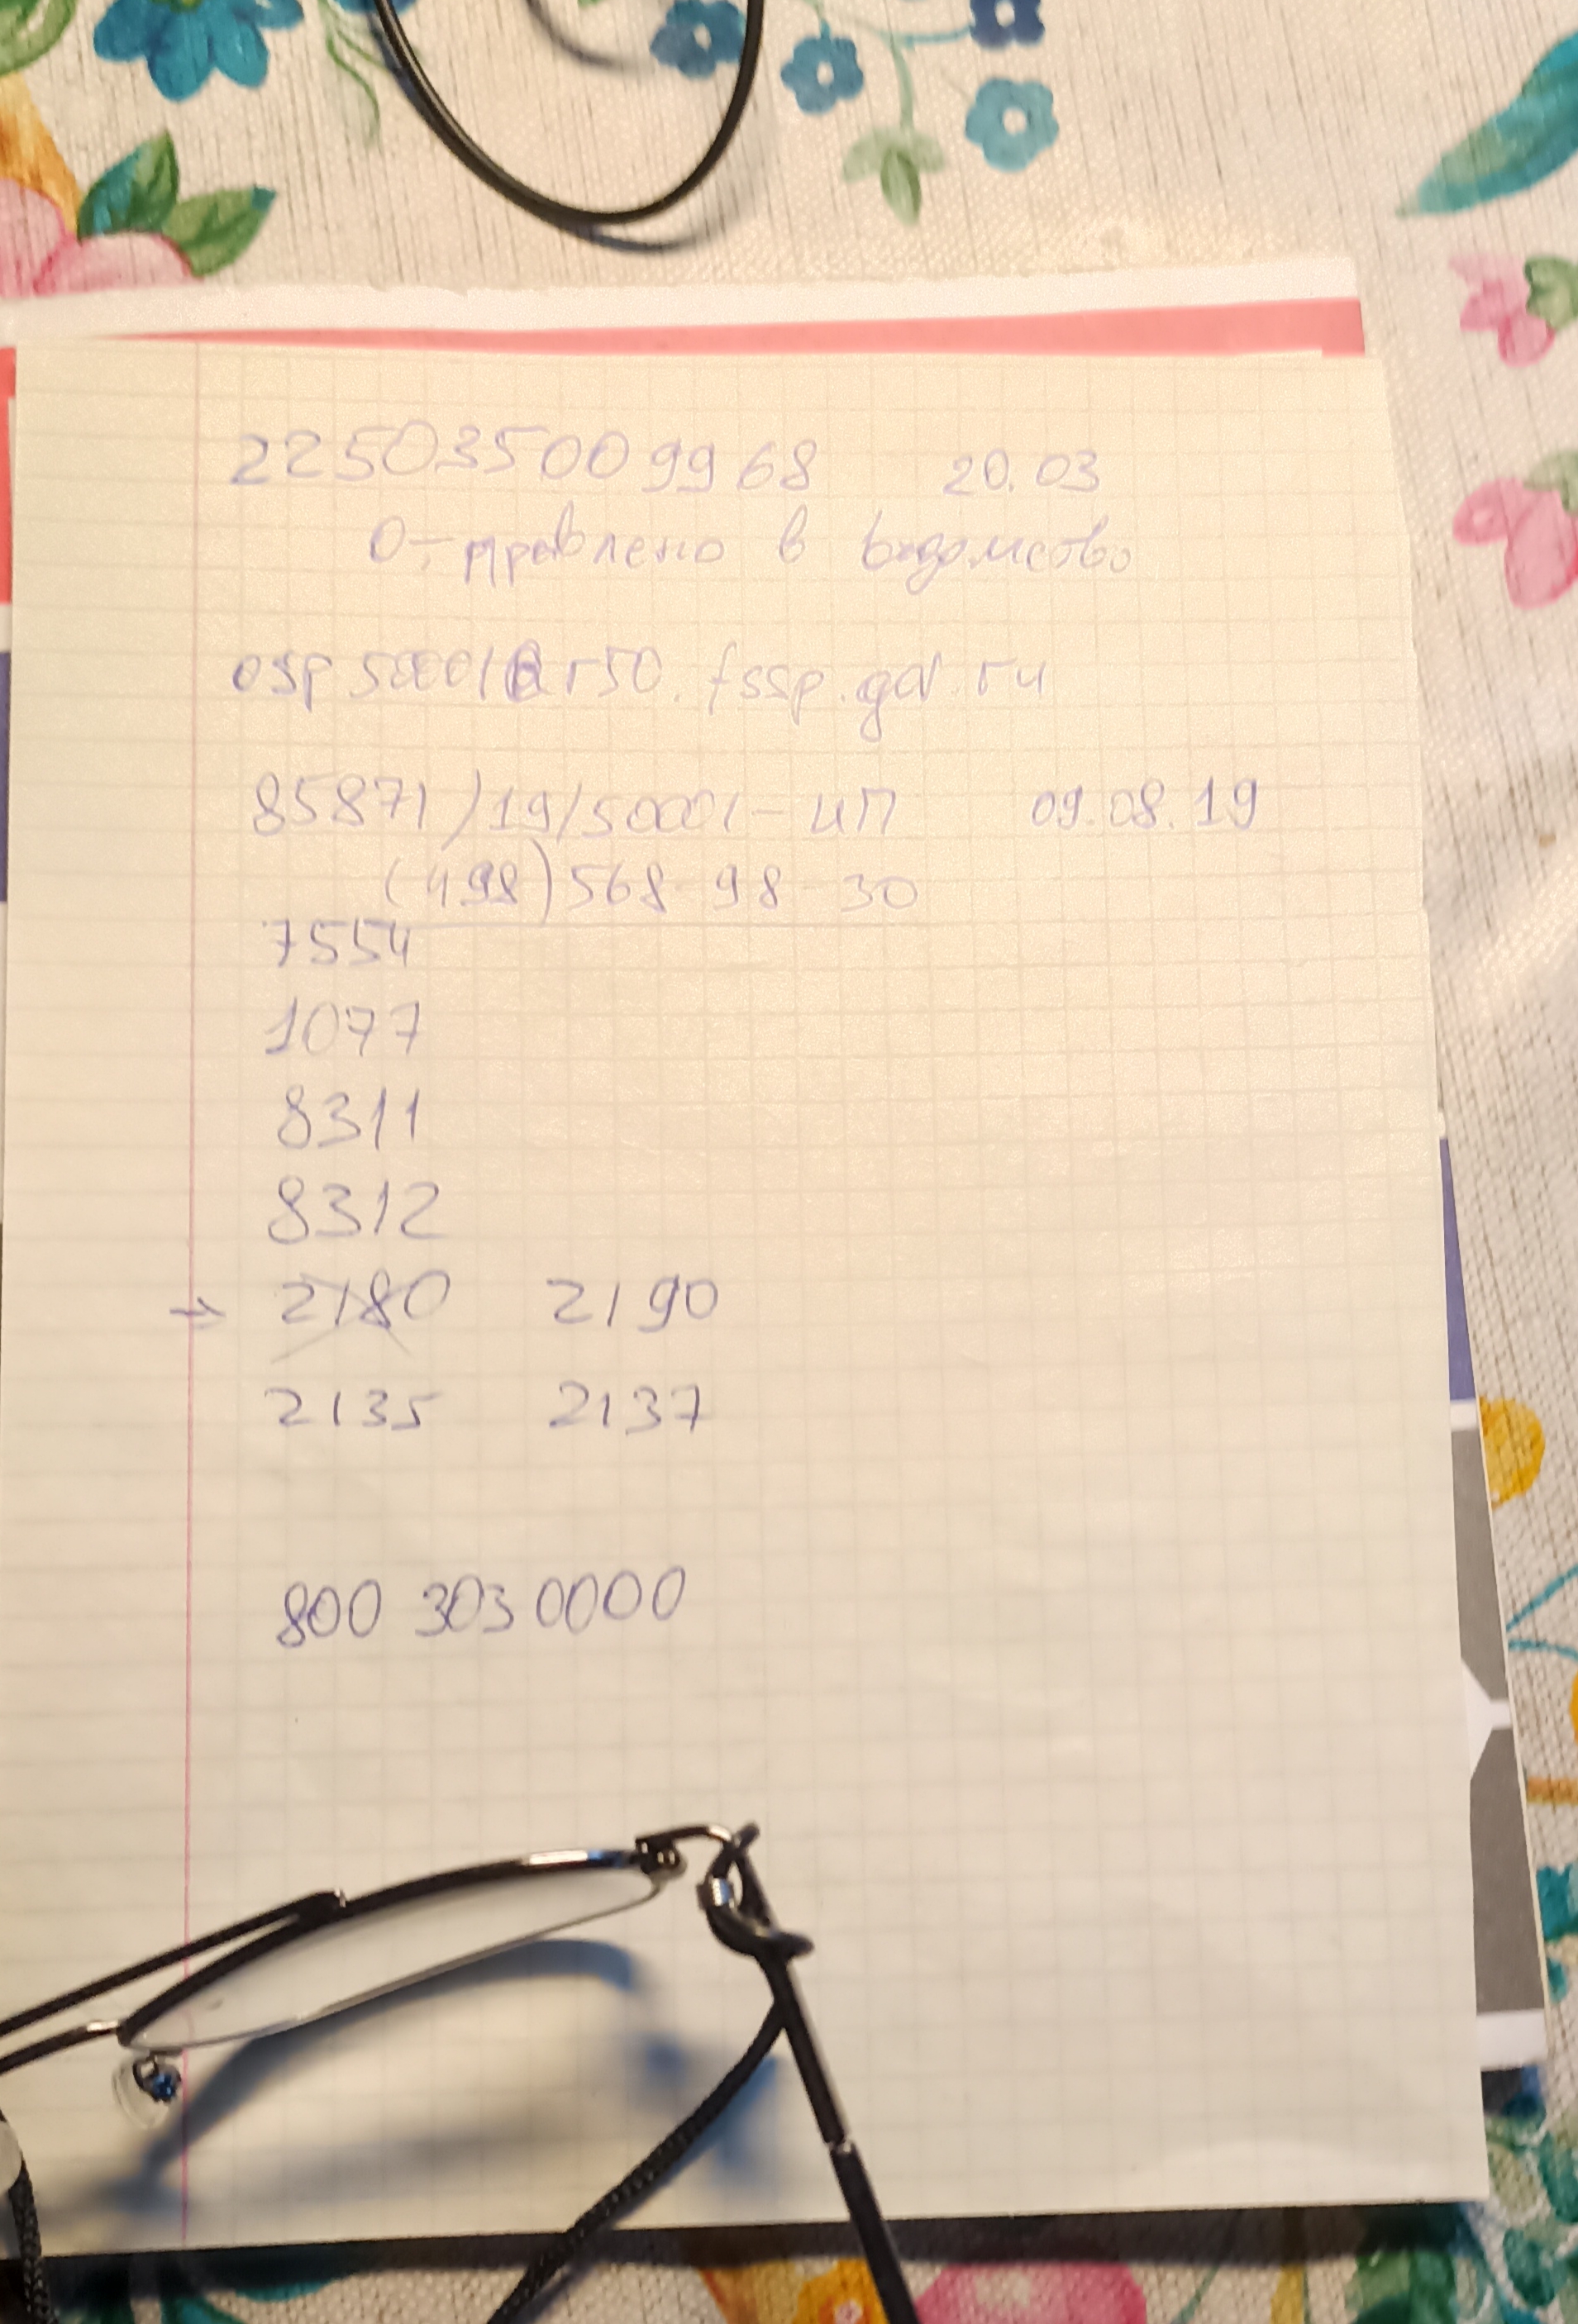 2250350099968 20.03
Отправлено в ведомство
osp50001@r50.fssp.gov.ru
85871/19/50001-ИП 09.08.19
(498) 568-98-30
7554
1077
8311
8312
→ 2180 2190
2135 2137
800 303 0000